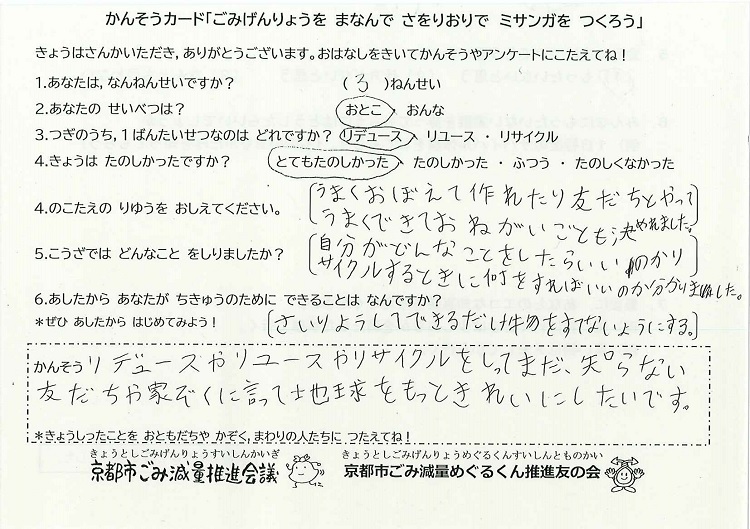 かんそうカード「ごみげんりょうを まなんで さをりおりで ミサンガを つくろう」
きょうはさんかいただき,ありがとうございます。おはなしをきいてかんそうやアンケートにこたえてね!
1.あなたは,なんねんせいですか? (3)ねんせい
2.あなたの せいべつは? おとこ・おんな
3.つぎのうち,1ばんたいせつなのは どれですか? リデュース・リユース・リサイクル
4.きょうは たのしかったですか? とてもたのしかった・たのしかった・ふつう・たのしくなかった
4.のこたえの りゆうを おしえてください。
うまくおぼえて作れたり友だちとやって
うまくできておねがいごとも決めれました。
5.こうざでは どんなこと をしりましたか?
自分がどんなことをしたらいいのかリ
サイクルするときに何をすればいいのか分かりました。
6.あしたから あなたが ちきゅうのために できることは なんですか?
*ぜひ あしたから はじめてみよう! さいりようしてできるだけ物をすてないようにする。
かんそう リデュースやリユースやリサイクルをしってまだ、知らない
友だちや家ぞくに言って地球をもっときれいにしたいです。
*きょうしったことを おともだちや かぞく,まわりの人たちに つたえてね!
きょうとしごみげんりょうすいしんかいぎ きょうとしごみげんりょうめぐるくんすいしんとものかい
京都市ごみ減量推進会議 京都市ごみ減量めぐるくん推進友の会